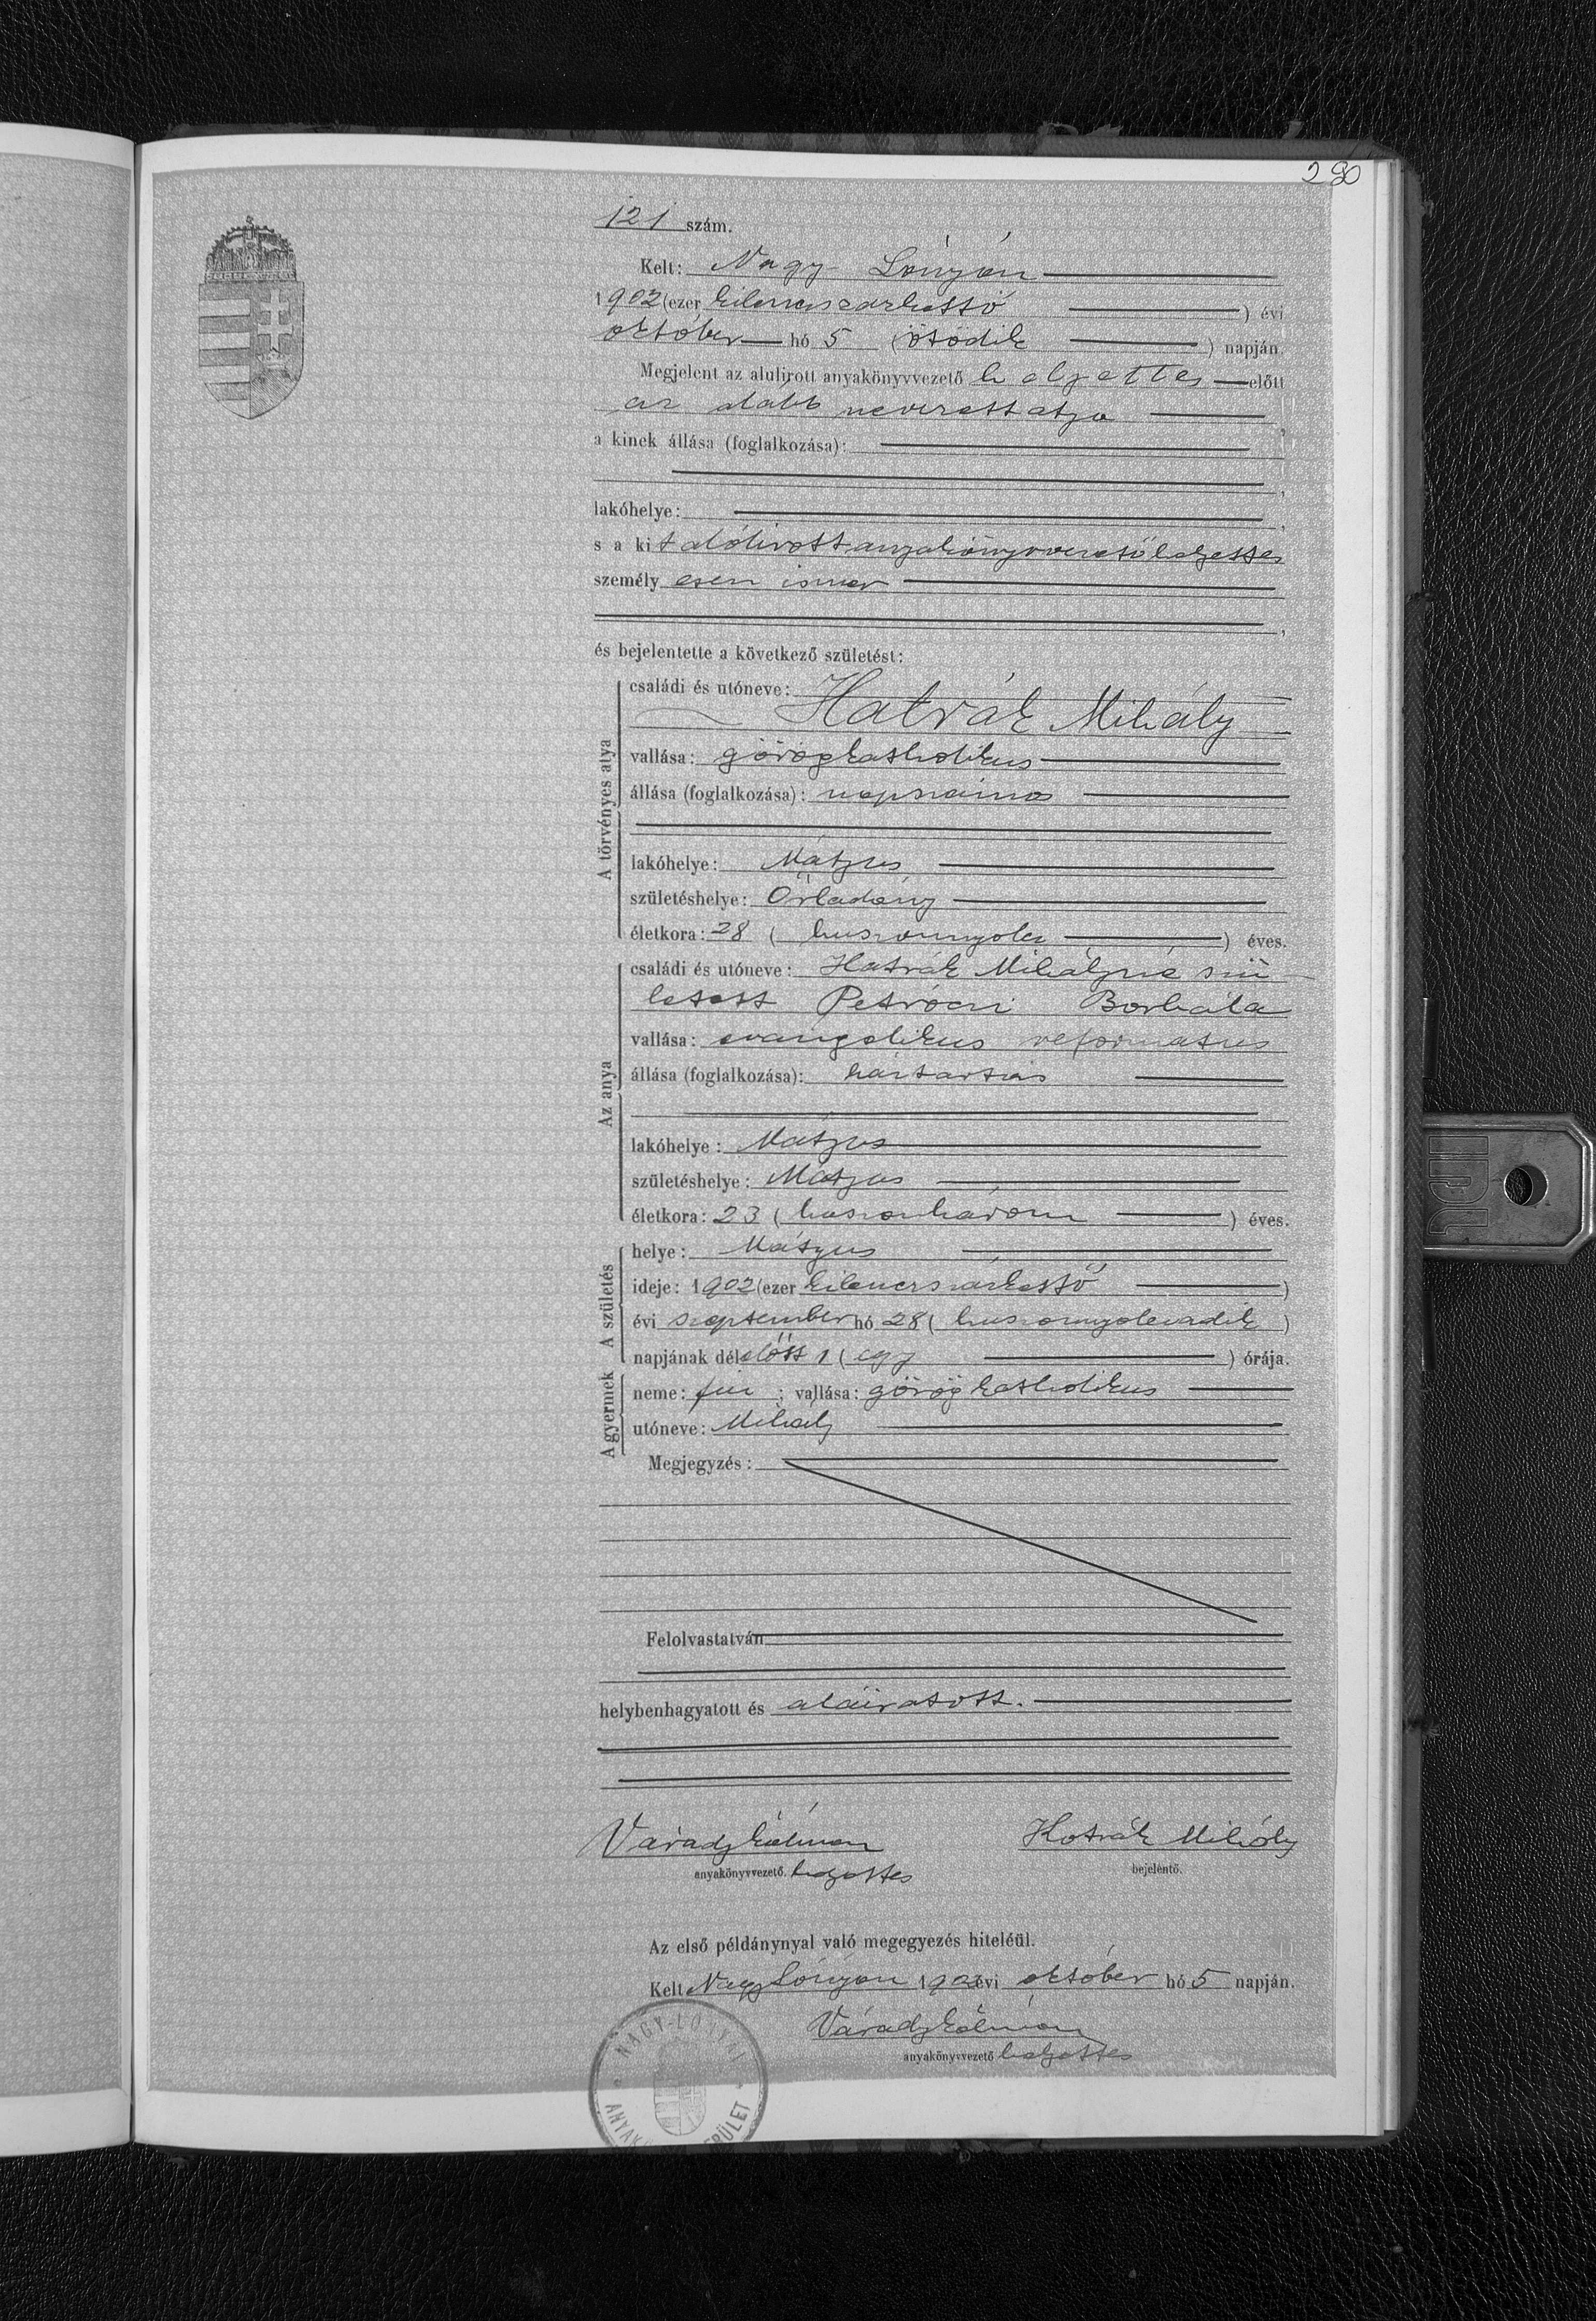 280
121 szám.
Kelt: Nagy-Lónyán
1902 (ezer kilenczszázkettő) évi
október hó 5 (ötödik) napján.
Megjelent az alulirott anyakönyvvezető helyettes előtt
az alább nevezett atya,
a kinek állása (foglalkozása):
lakóhelye:
s a kit alólirott anyakönyvvezető helyettes
személyesen ismer
és bejelentette a következő születést:
A törvényes atya
családi és utóneve:
Hatrák Mihály
vallása: görög katholikus
állása (foglalkozása): napszámos
lakóhelye: Mátyus
születéshelye: Őrladány
életkora: 28 (huszonnyolcz) éves.
Az anya
családi és utóneve: Hatrák Mihályné szü
letett Petróczi Borbála
vallása: evangelikus reformatus
állása (foglalkozása): háztartás
lakóhelye: Mátyus
születéshelye: Mátyus
életkora: 23 (huszonhárom) éves.
A születés
helye: Mátyus
ideje: 1902 (ezer kilenczszázkettő)
évi szeptember hó 28 (huszonnyolczadik)
napjának délelőtt 1 (egy) órája.
A gyermek
neme: fiú; vallása: görög katholikus
utóneve: Mihály
Megjegyzés:
Felolvastatván
helybenhagyatott és aláiratott.
Várady Kálmán Hatrák Mihály
anyakönyvvezető. helyettes bejelentő.
Az első példánynyal való megegyezés hiteléül.
Kelt Nagy Lónyán 1902 évi október hó 5 napján.
Várady Kálmán
anyakönyvvezető helyettes
NAGY-LÓNYAI